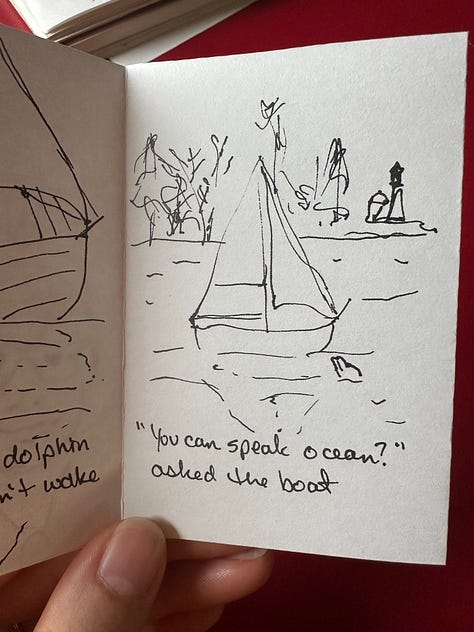 dolphin
n't wake
"You can speak ocean?"
asked the boat